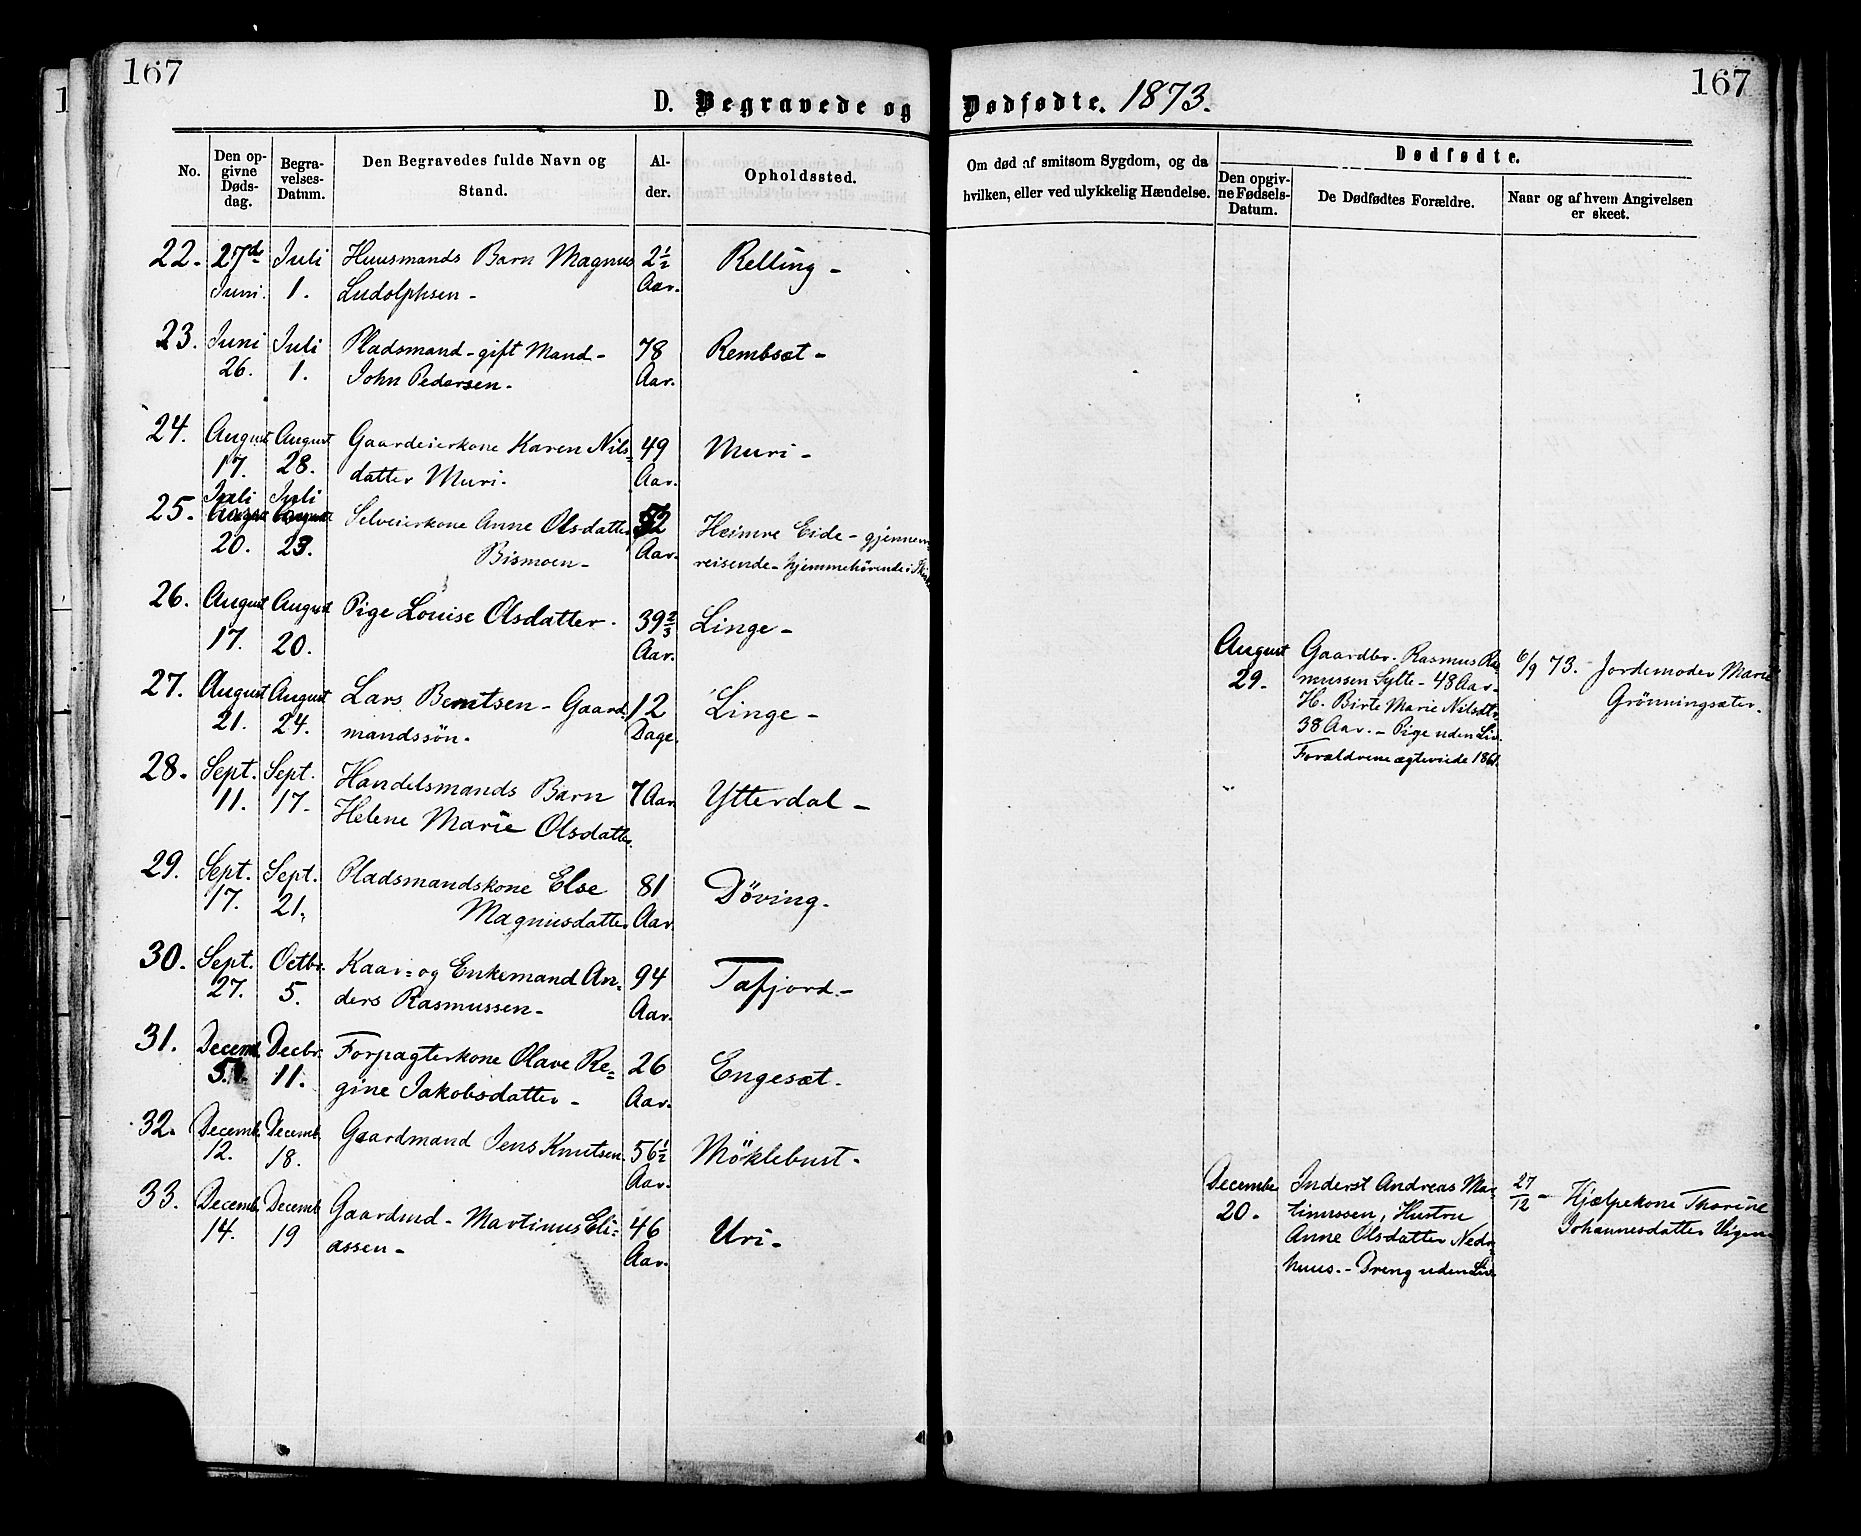 167
167
D. Begravede og Dødfødte. 1873.
No.
Den opgivne Dødsdag.
Begravelses-Datum.
Den Begravedes fulde Navn og Stand.
Alder.
Opholdssted.
Om død af smitsom Sygdom, og da hvilken, eller ved ulykkelig Hændelse.
Dødfødte.
Den opgivne Fødsels-Datum.
De Dødfødtes Forældre.
Naar og af hvem Angivelsen er skeet.
22. 27de Juli Huusmands Barn Magnus 2½ Relling -
Juni. 1. Ludolphsen - Aar.
23. Juni Juli Pladsmand - gift Mand - 78 Rembsæt -
26. 1. John Pedersen - Aar.
24. August August Gaardeierkone Karen Nils= 49 Muri -
17. 28. datter Muri. Aar.
Juli Juli
25. August August Selveierkone Anne Olsdatter 52 Heimre Eide - gjennem=
20. 23. Bismoen - Aar. reisende - hjemmehørende i
26. August August Pige Louise Olsdatter. 39⅔ Linge -
17. 20. Aar.
August Gaardbr. Rasmus Ra= 6/9 73. - Jordemoder Marie
29. mussen Sylte - 48 Aar - Grönningsæter.
H. Birte Marie Nilsdtr.
38 Aar. - Pige uden Liv.
Forældrene ægteviede 1861.
27. August August Lars Berntsen - Gaard= 12 Linge -
21. 24. mandssön. Dage.
28. Sept. Sept. Handelsmands Barn 7 Aar Ytterdal -
11. 17. Helene Marie Olsdatter
29. Sept. Sept. Pladsmandskone Else 81 Döving.
17. 21. Magnusdatter Aar.
30. Sept. Octbr. Kaar= og Enkemand An= 94 Tafjord. -
27. 5. ders Rasmussen - Aar.
31. Decemb. Decbr. Forpagterkone Olave Re= 26 Engesæt -
5. 11. gine Jakobsdatter - Aar.
32. Decemb. Decemb. Gaardmand Jens Knutsen. 56½ Möklebust -
12. 18. Aar.
33. Decemb. Decemb Gaardmd - Martinus Eli= 46 Uri -
14. 19 assen - Aar.
December Inderst Andreas Ma= 27/12 - Hjælpekone Thorine
20. tinussen, Hustru Johannesdatter Vigen.
Anne Olsdatter Nedre=
huus. - Dreng uden Liv.